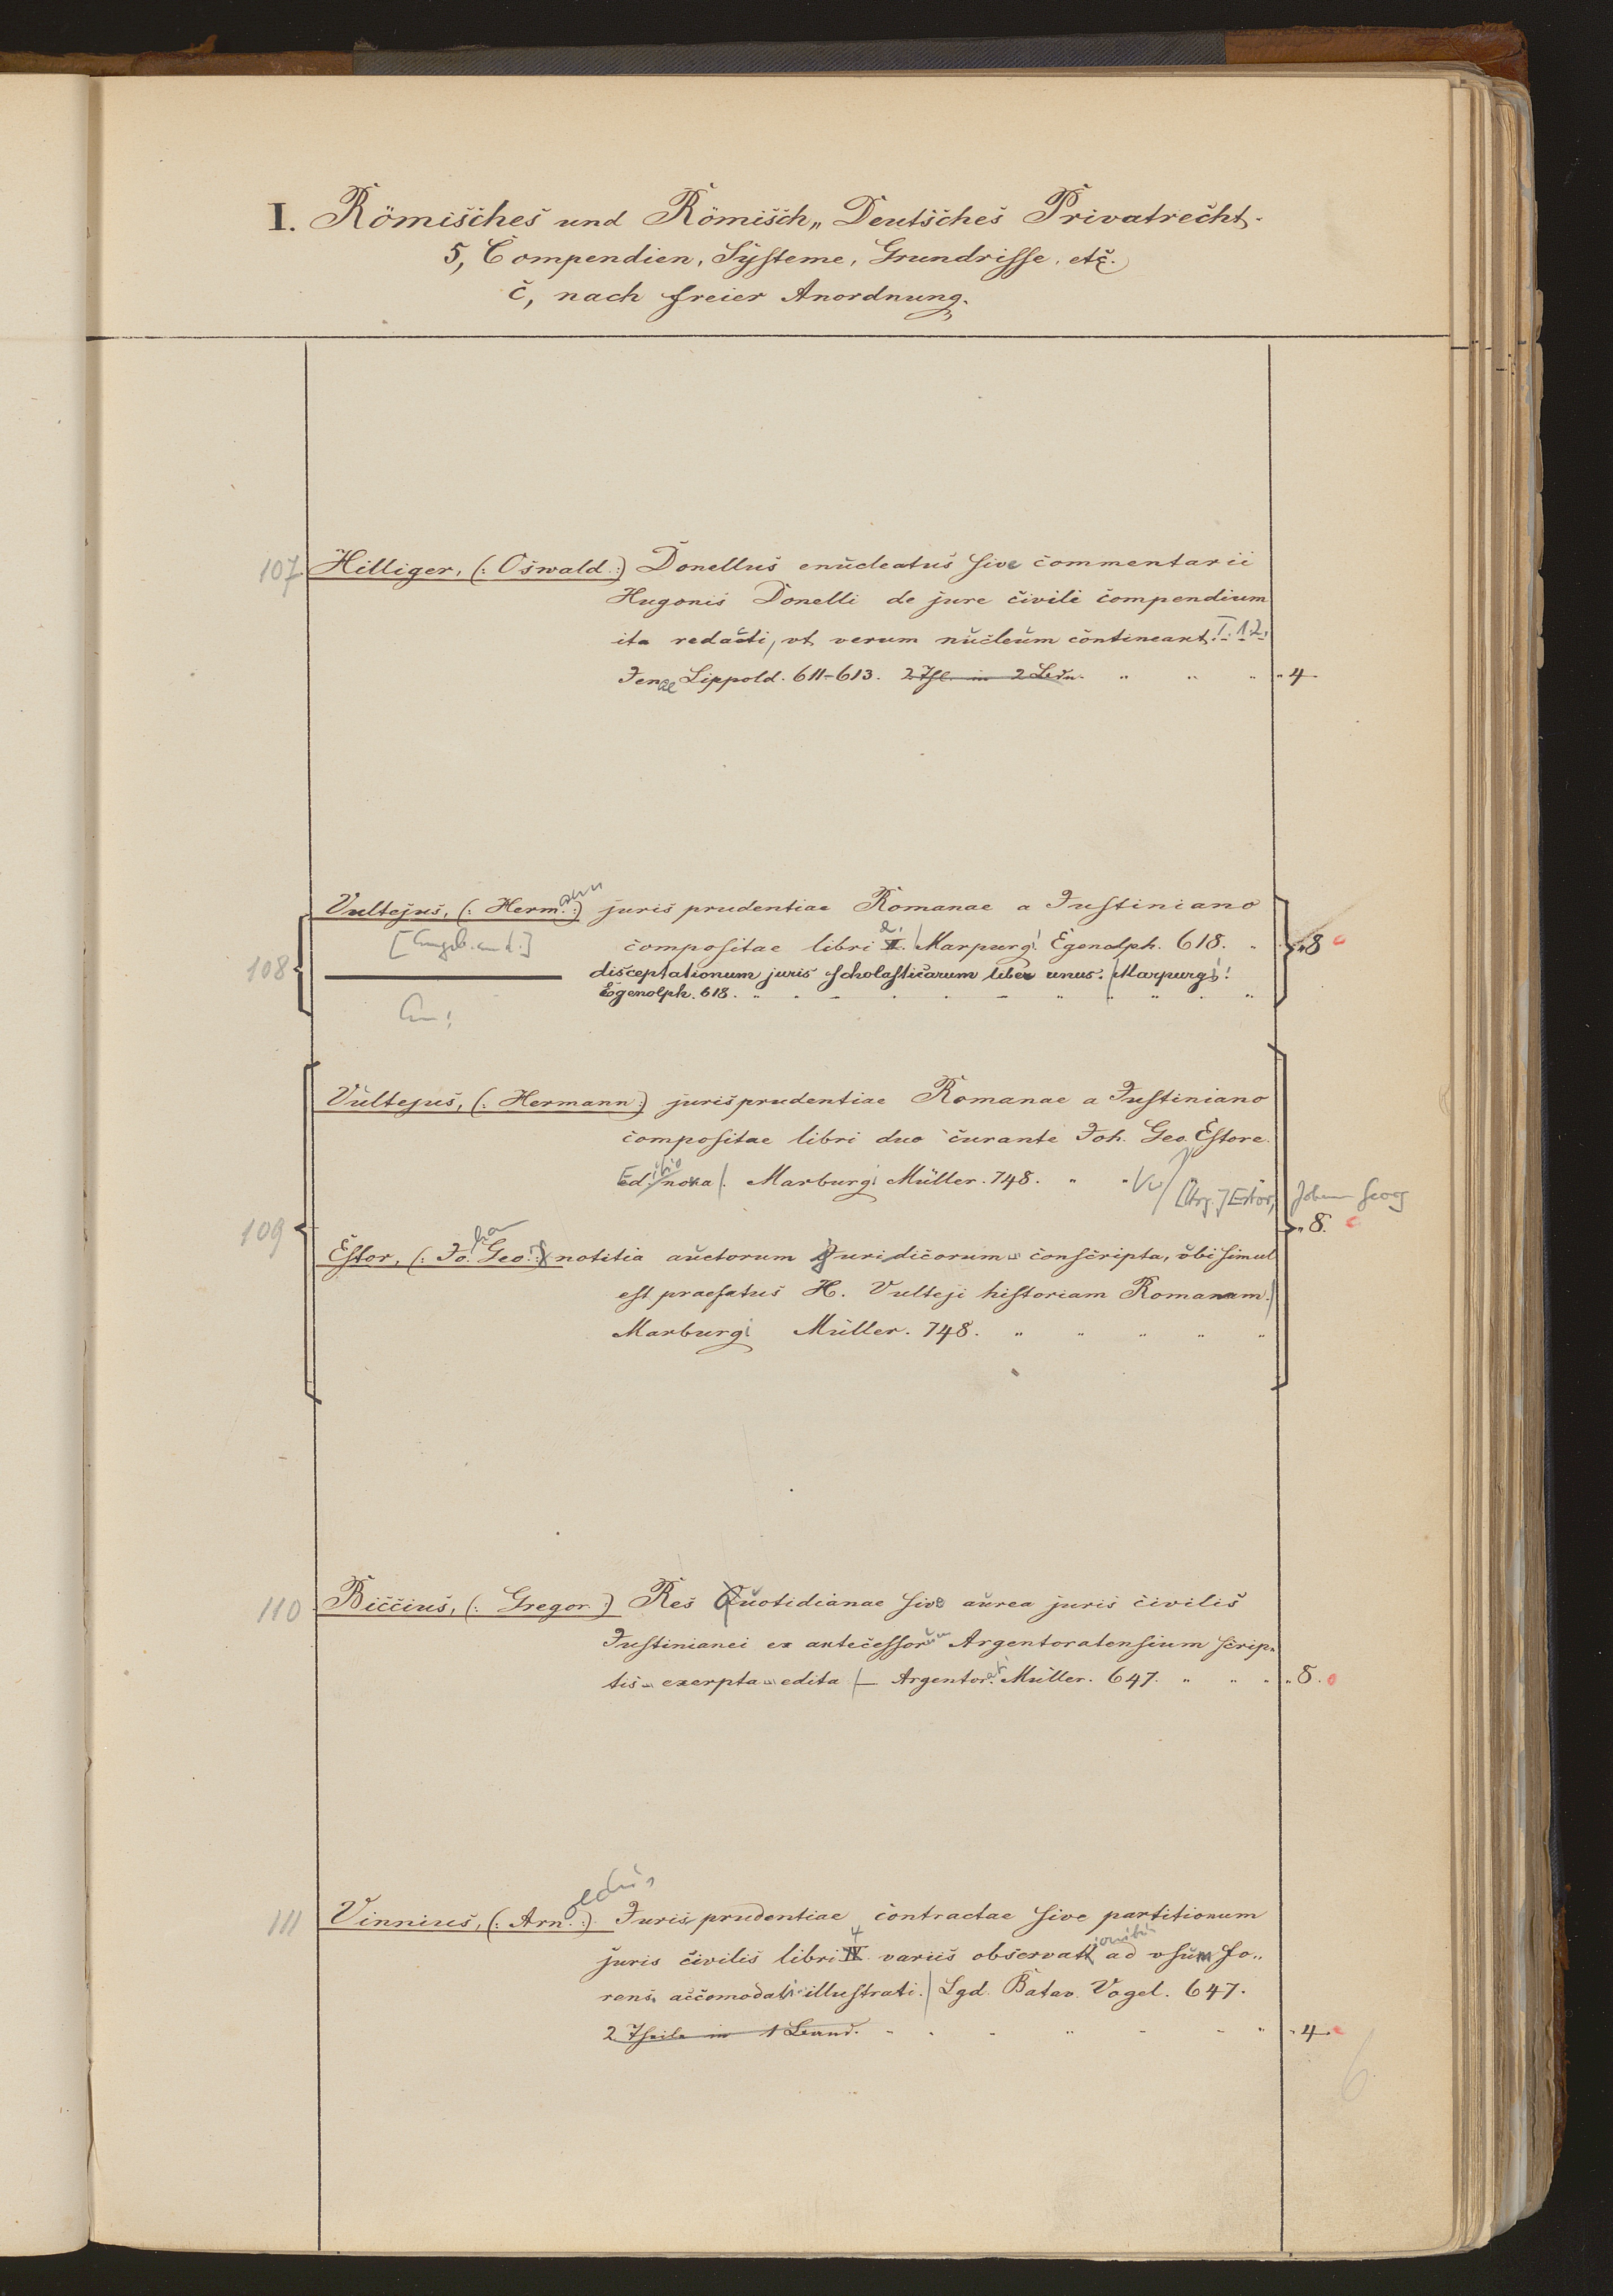 I. Römisches und Römisch„ Deutsches Privatrecht.
5, Compendien, Systeme, Grundrisse, etc.
c, nach freier Anordnung.
107 Hilliger, (: Oswald :) Donellus enucleatus sive commentarii
Hugonis Donelli de jure civili compendium
ita redacti, vt verum nucleum contineant. I. 1. 2.
Jenae Lippold. 611–613. 2 Thl. in 2 Bdn. " " " " 4
Vultejus, (: Hermann :) juris prudentiae Romanae a Justiniano
compositae libri II. 2. Marpurgi Egenolph. 618. " " 8
108
disceptationum juris scholasticarum liber unus. Marpurgi
Egenolph. 618.
Vultejus, (: Hermann :) jurisprudentiae Romanae a Justiniano
compositae libri duo curante Joh. Geo. Estore.
Editio nova. Marburgi Müller. 748. " " [Hrg.] Estor, Johann Georg
109 " 8.
Estor, (: Jo. Geo. :) notitia auctorum juridicorum conscripta, vbi simul
est praefatus H. Vulteji historiam Romanam.
Marburgi Müller. 748. " " " " "
110 Biccius, (: Gregor :) Res Quotidianae sive aurea juris civilis
Justinianei ex antecessorum Argentoratensium scrip„
tis exerpta edita – Argentorati Müller. 647. " " " " 8.
111 Vinnius, (: Arn. :) Juris prudentiae contractae sive partitionum
juris civilis libri IV 4 variis observationibus ad vsum fo„
rens. accomodati illustrati. Lgd. Batav. Vogel. 647.
2 Theile in 1 Band. " " " " " " " " 4
6